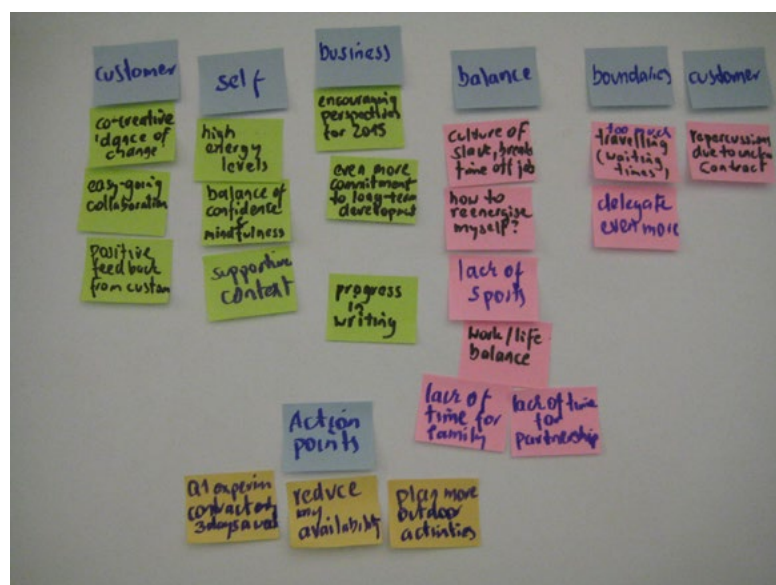 customer
co-creative
dance of
change
easy-going
collaboration
positive
feedback
from custom
self
high
energy
levels
balance of
confidence
mindfulness
supportive
context
business
encouraging
perspectives
for 2015
even more
commitment
to long-term
development
progress
in
writing
balance
culture of
slack, break
time off job
how to
reenergise
myself?
lack of
sports
work/life
balance
lack of
time for
family
lack of time
for
partnership
boundaries
too much
travelling
(waiting
times)
delegate
even more
customer
repercussions
due to
contract
Action
points
Q1 experim
contract only
3 days a week
reduce
my
availability
plan more
outdoor
activities